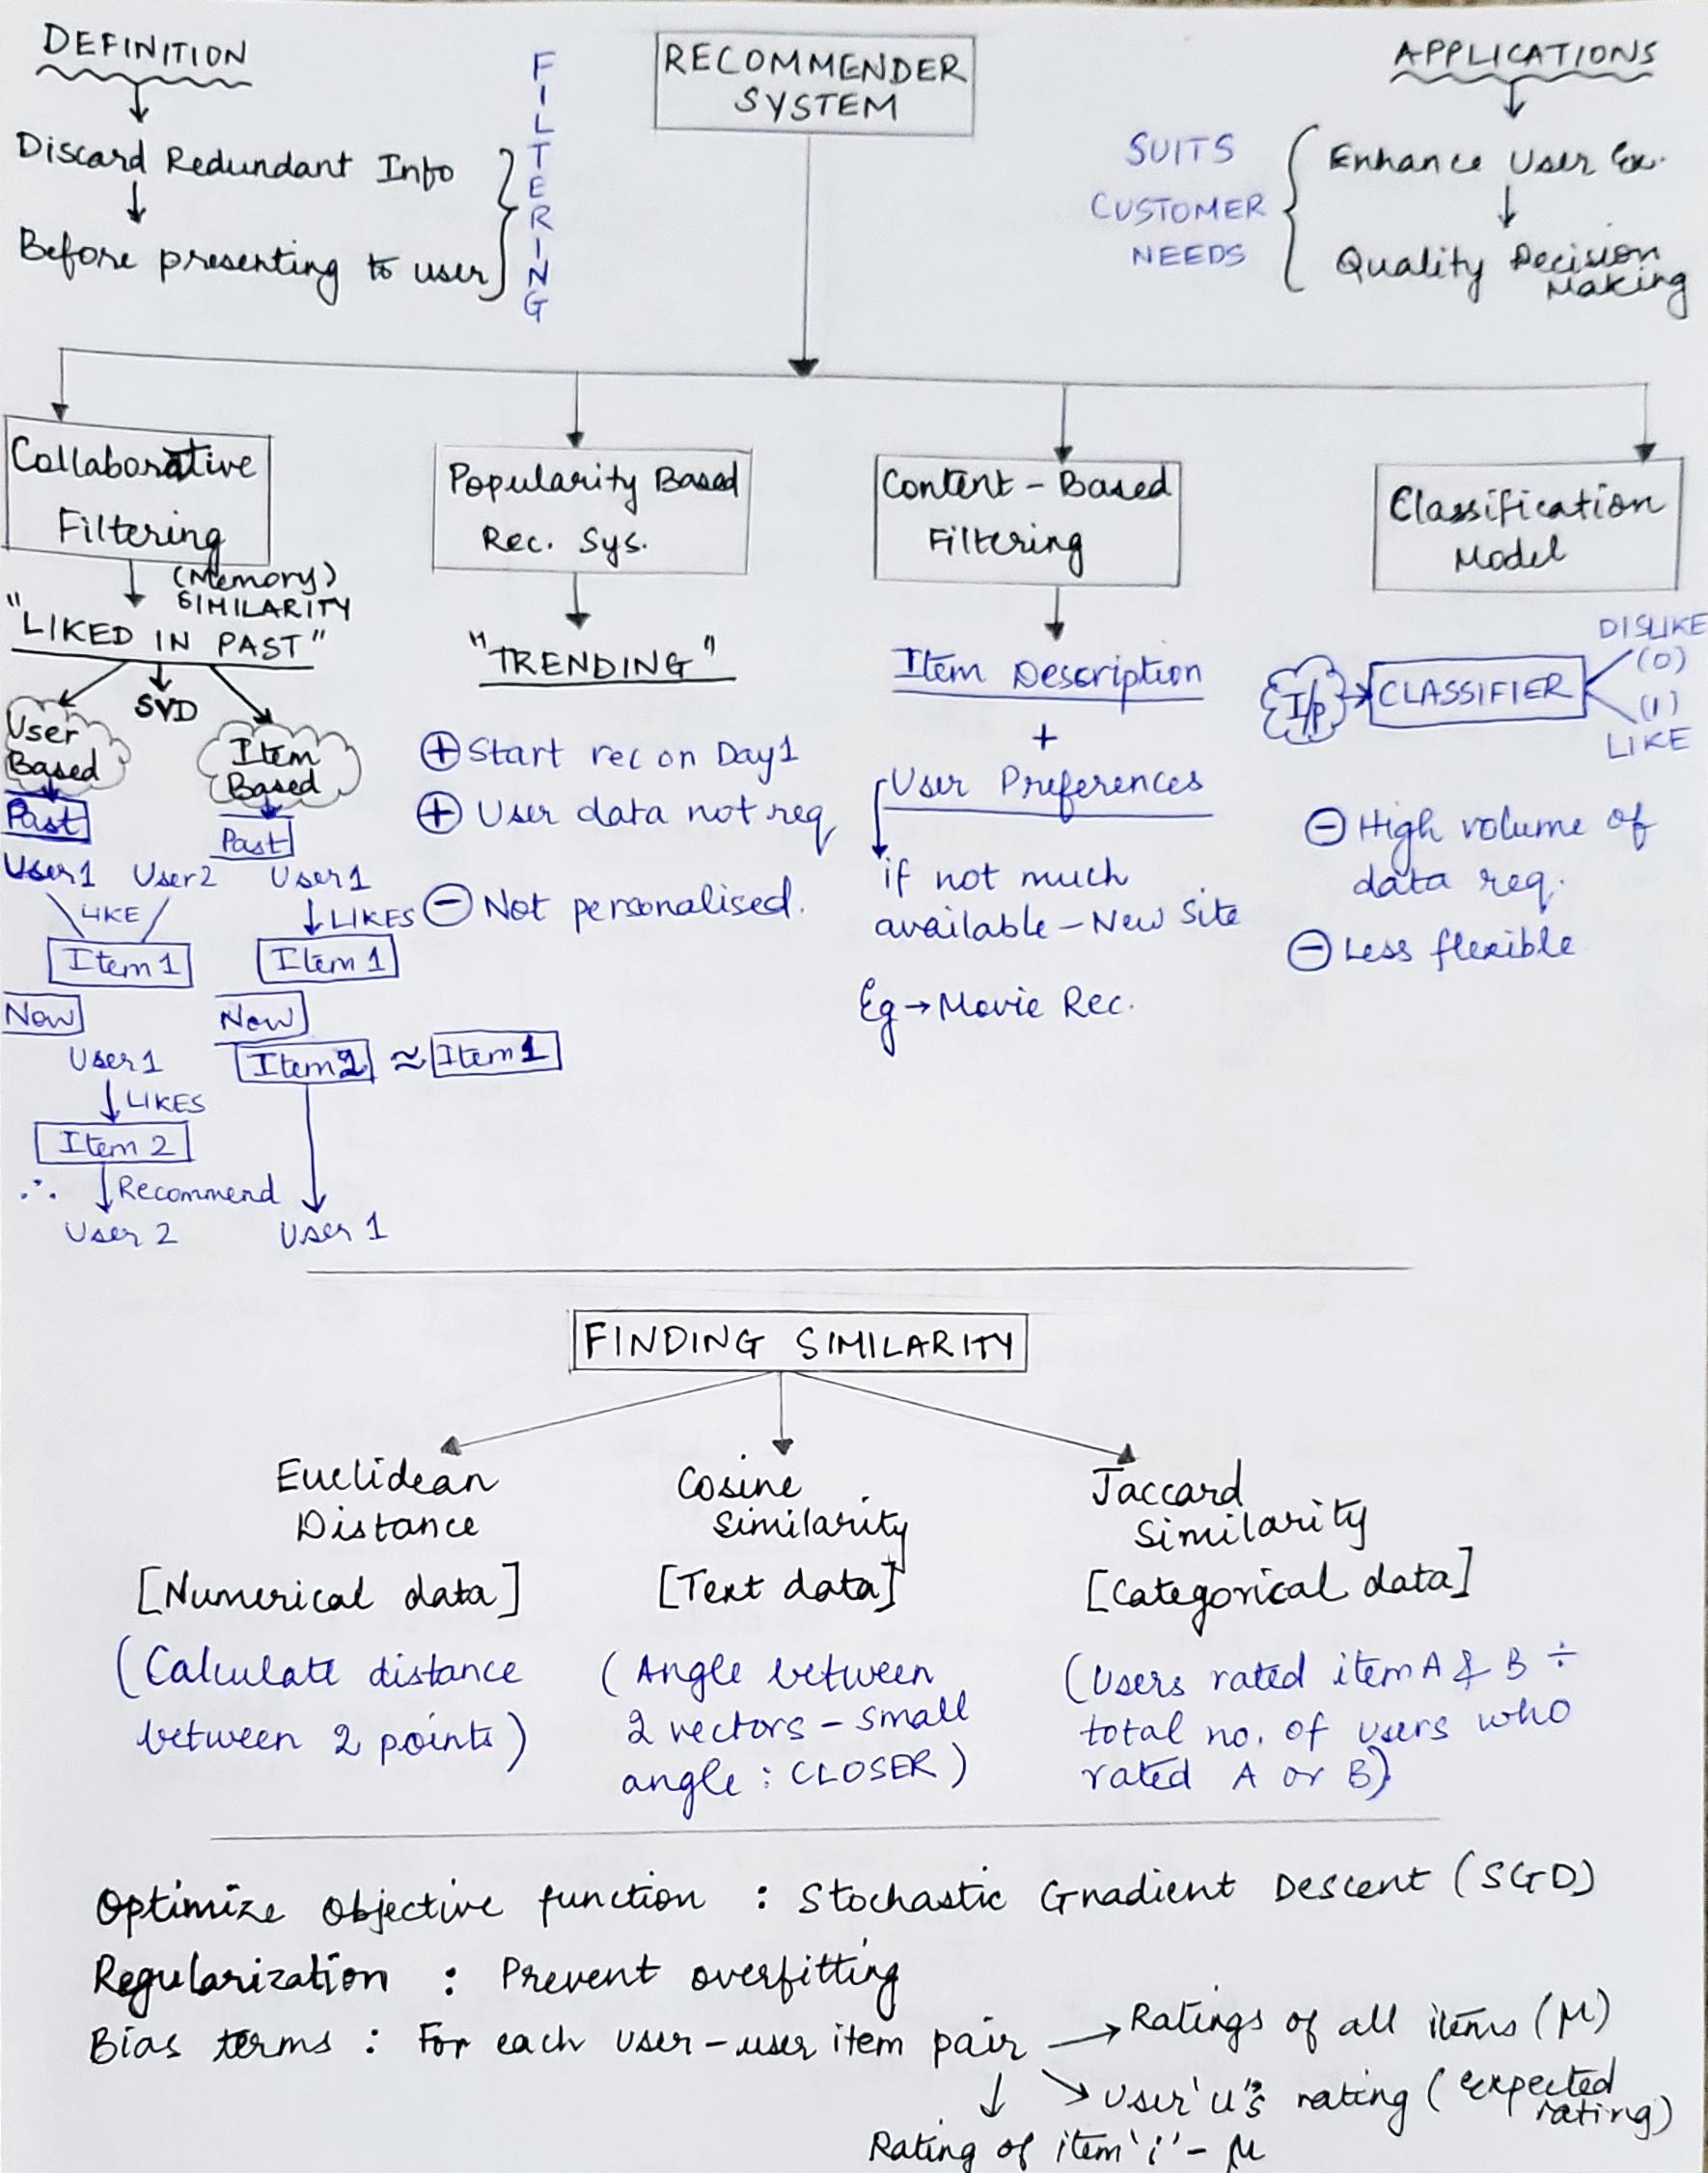 DEFINITION
Discard Redundant Info
Before presenting to user
FILTERING
RECOMMENDER
SYSTEM
APPLICATIONS
SUITS
CUSTOMER
NEEDS
Enhance User Ex.
Quality Decision
Making
Collaborative
Filtering
(Memory)
SIMILARITY
"LIKED IN PAST"
SVD
User
Based
Past
User1 User2
LIKE
Item 1
Now
User 1
LIKES
Item 2
∴ Recommend
User 2
Item
Based
Past
User 1
LIKES
Item 1
Now
Item 2 ≈ Item 1
User 1
Popularity Based
Rec. Sys.
"TRENDING"
⊕ Start rec on Day1
⊕ User data not req
⊖ Not personalised.
Content-Based
Filtering
Item Description
+
User Preferences
if not much
available - New Site
Eg → Movie Rec.
Classification
Model
I/p → CLASSIFIER
DISLIKE
(0)
(1)
LIKE
⊖ High volume of
data req.
⊖ Less flexible
FINDING SIMILARITY
Euclidean
Distance
[Numerical data]
(Calculate distance
between 2 points)
Cosine
Similarity
[Text data]
(Angle between
2 vectors - small
angle : CLOSER)
Jaccard
Similarity
[Categorical data]
(Users rated item A & B ÷
total no. of users who
rated A or B)
Optimize Objective function : Stochastic Gradient Descent (SGD)
Regularization : Prevent overfitting
Bias terms : For each user-user item pair → Ratings of all items (μ)
User 'u's rating (expected
rating)
Rating of item 'i' - μ